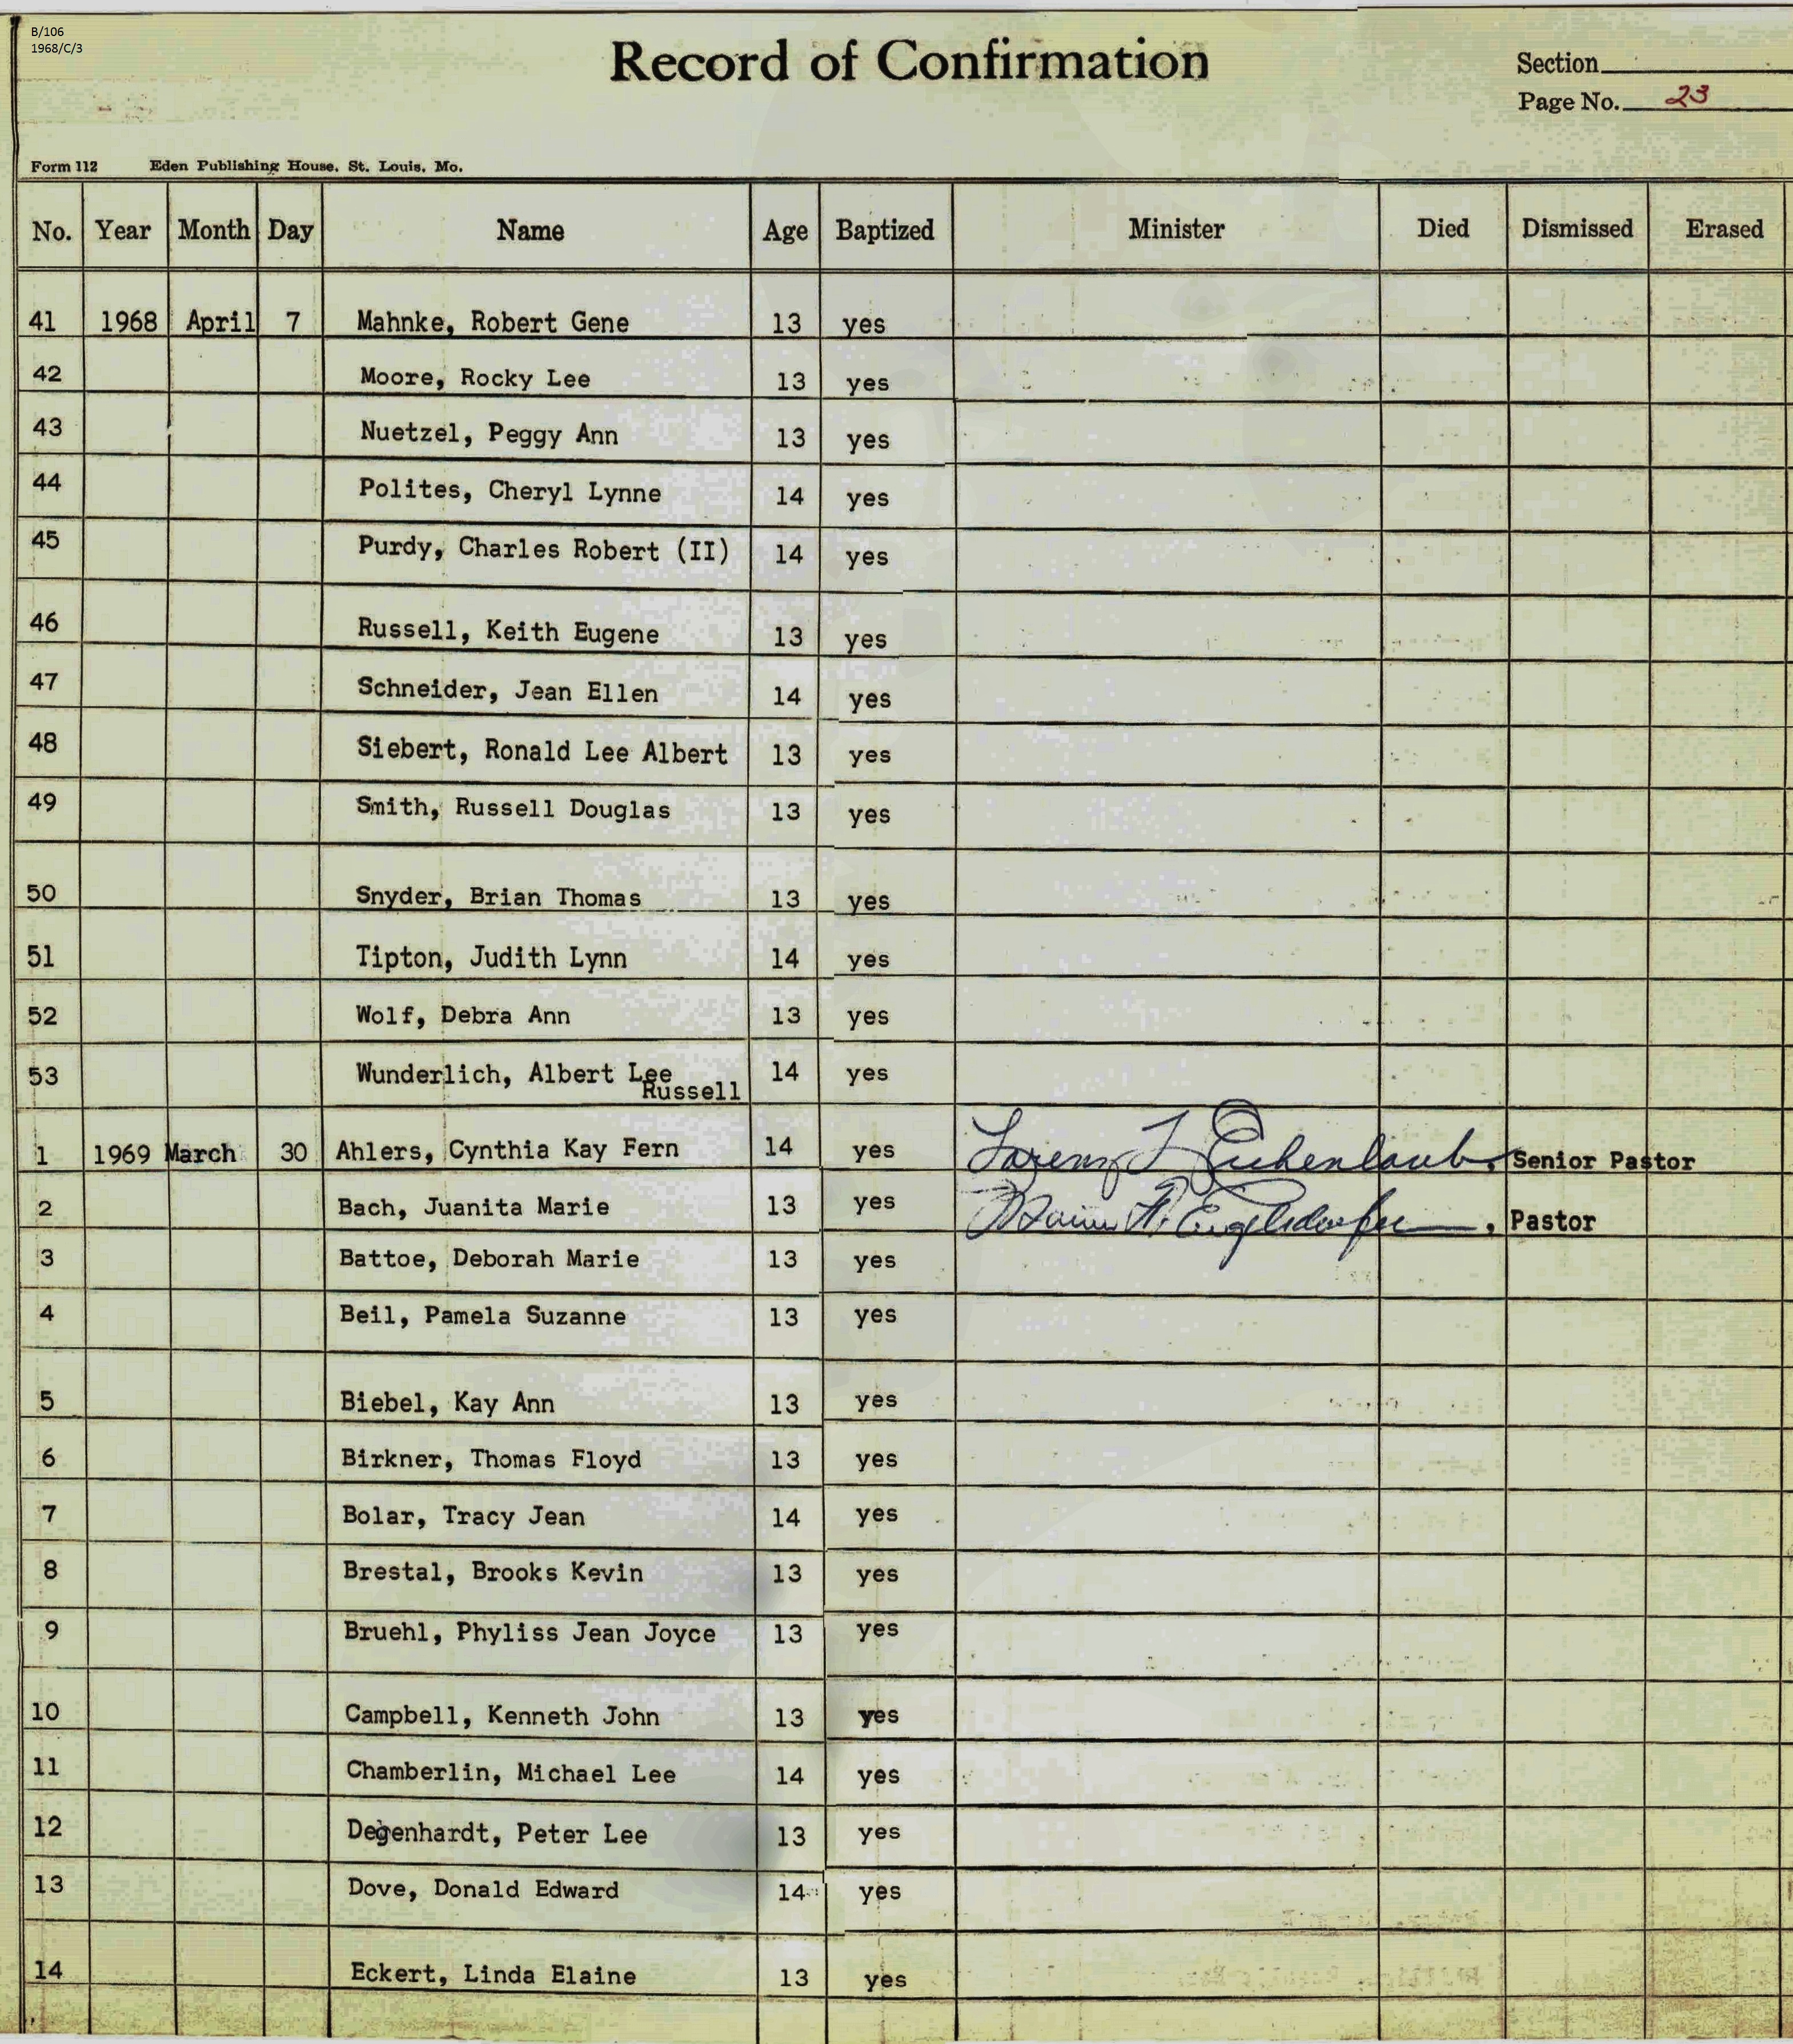 B/106
1968/C/3
Record of Confirmation
Section
Page No. 23
Form 112 Eden Publishing House, St. Louis, Mo.
No. Year Month Day Name Age Baptized Minister Died Dismissed Erased
41 1968 April 7 Mahnke, Robert Gene 13 yes
42 Moore, Rocky Lee 13 yes
43 Nuetzel, Peggy Ann 13 yes
44 Polites, Cheryl Lynne 14 yes
45 Purdy, Charles Robert (II) 14 yes
46 Russell, Keith Eugene 13 yes
47 Schneider, Jean Ellen 14 yes
48 Siebert, Ronald Lee Albert 13 yes
49 Smith, Russell Douglas 13 yes
50 Snyder, Brian Thomas 13 yes
51 Tipton, Judith Lynn 14 yes
52 Wolf, Debra Ann 13 yes
53 Wunderlich, Albert Lee 14 yes
Russell
1 1969 March 30 Ahlers, Cynthia Kay Fern 14 yes Lorenz Eichenlaub, Senior Pastor
2 Bach, Juanita Marie 13 yes Engelsdorfer, Pastor
3 Battoe, Deborah Marie 13 yes
4 Beil, Pamela Suzanne 13 yes
5 Biebel, Kay Ann 13 yes
6 Birkner, Thomas Floyd 13 yes
7 Bolar, Tracy Jean 14 yes
8 Brestal, Brooks Kevin 13 yes
9 Bruehl, Phyliss Jean Joyce 13 yes
10 Campbell, Kenneth John 13 yes
11 Chamberlin, Michael Lee 14 yes
12 Degenhardt, Peter Lee 13 yes
13 Dove, Donald Edward 14 yes
14 Eckert, Linda Elaine 13 yes